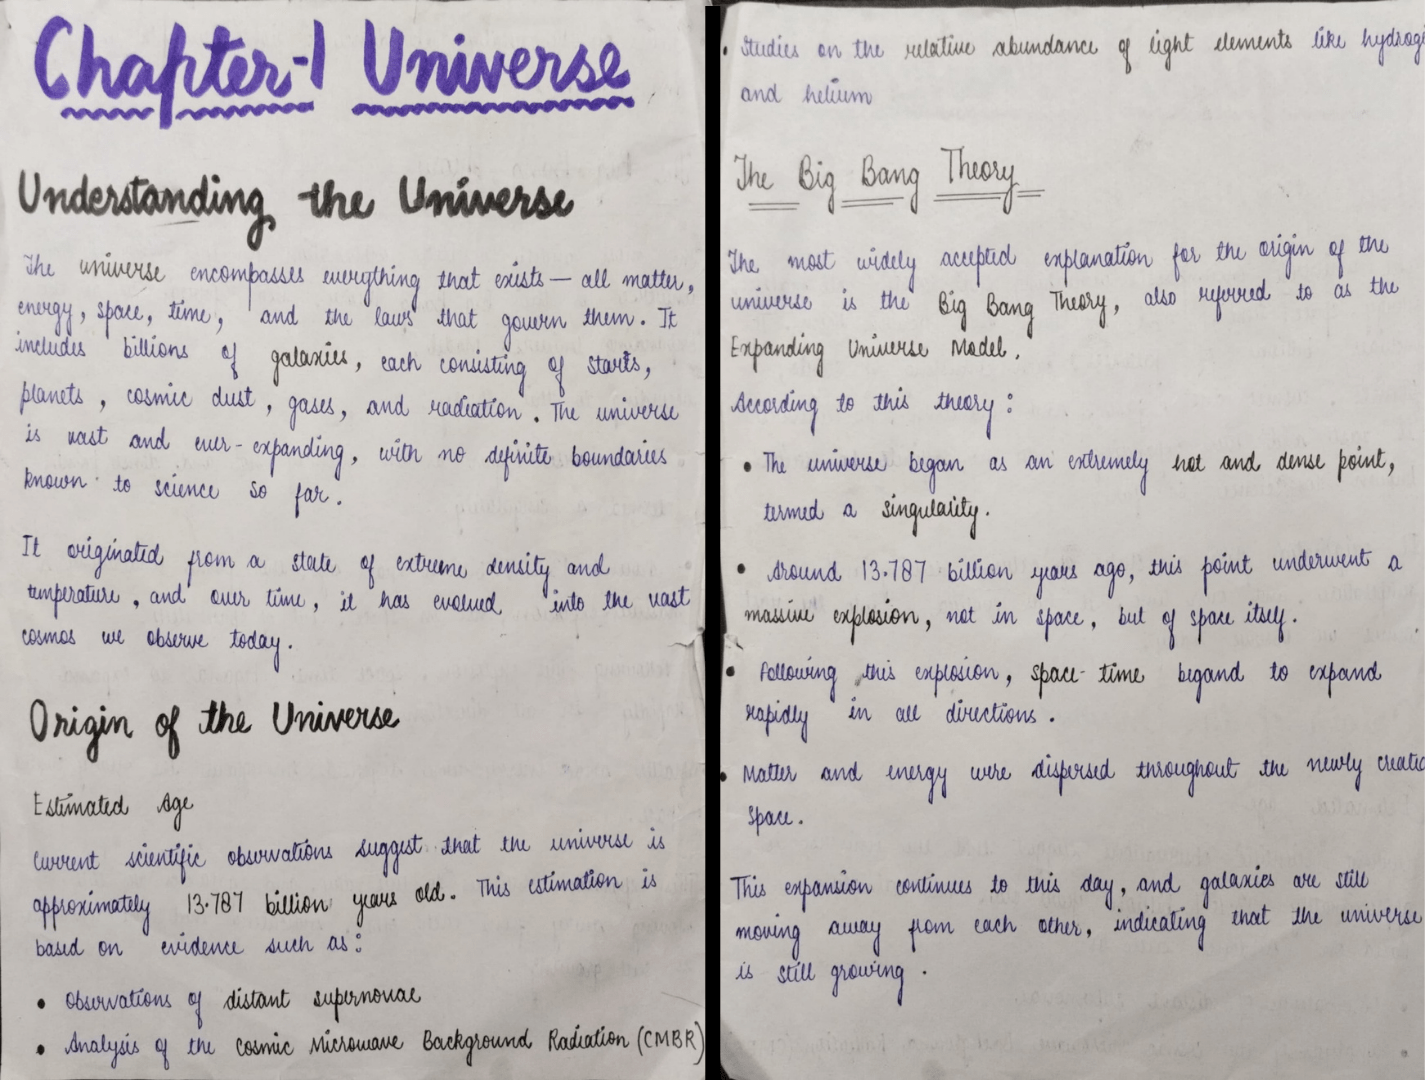 Chapter-1 Universe
Understanding the Universe
The universe encompasses everything that exists — all matter,
energy, space, time, and the laws that govern them. It
includes billions of galaxies, each consisting of starts,
planets, cosmic dust, gases, and radiation. The universe
is vast and ever-expanding, with no definite boundaries
known to science so far.
It originated from a state of extreme density and
temperature, and over time, it has evolved into the vast
cosmos we observe today.
Origin of the Universe
Estimated Age
Current scientific observations suggest that the universe is
approximately 13.787 billion years old. This estimation is
based on evidence such as:
• Observations of distant supernovae
• Analysis of the Cosmic Microwave Background Radiation (CMBR)
• Studies on the relative abundance of light elements like hydrog
and helium
The Big Bang Theory
The most widely accepted explanation for the origin of the
universe is the Big Bang Theory, also referred to as the
Expanding Universe Model.
According to this theory:
• The universe began as an extremely hot and dense point,
termed a singularity.
• Around 13.787 billion years ago, this point underwent a
massive explosion, not in space, but of space itself.
• Following this explosion, space-time begand to expand
rapidly in all directions.
• Matter and energy were dispersed throughout the newly create
space.
This expansion continues to this day, and galaxies are still
moving away from each other, indicating that the universe
is still growing.